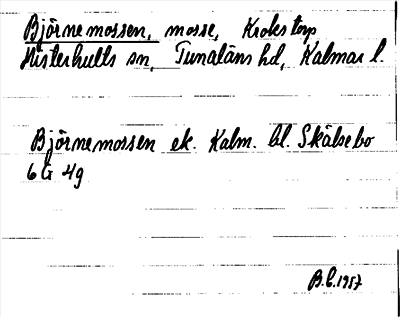 Björnemossen, mosse, Krokstorp
Misterhults sn, Tunaläns hd, Kalmar l.
Björnemossen ek. Kalm. bl. Skälsebo
6G 4g
B.C. 1957